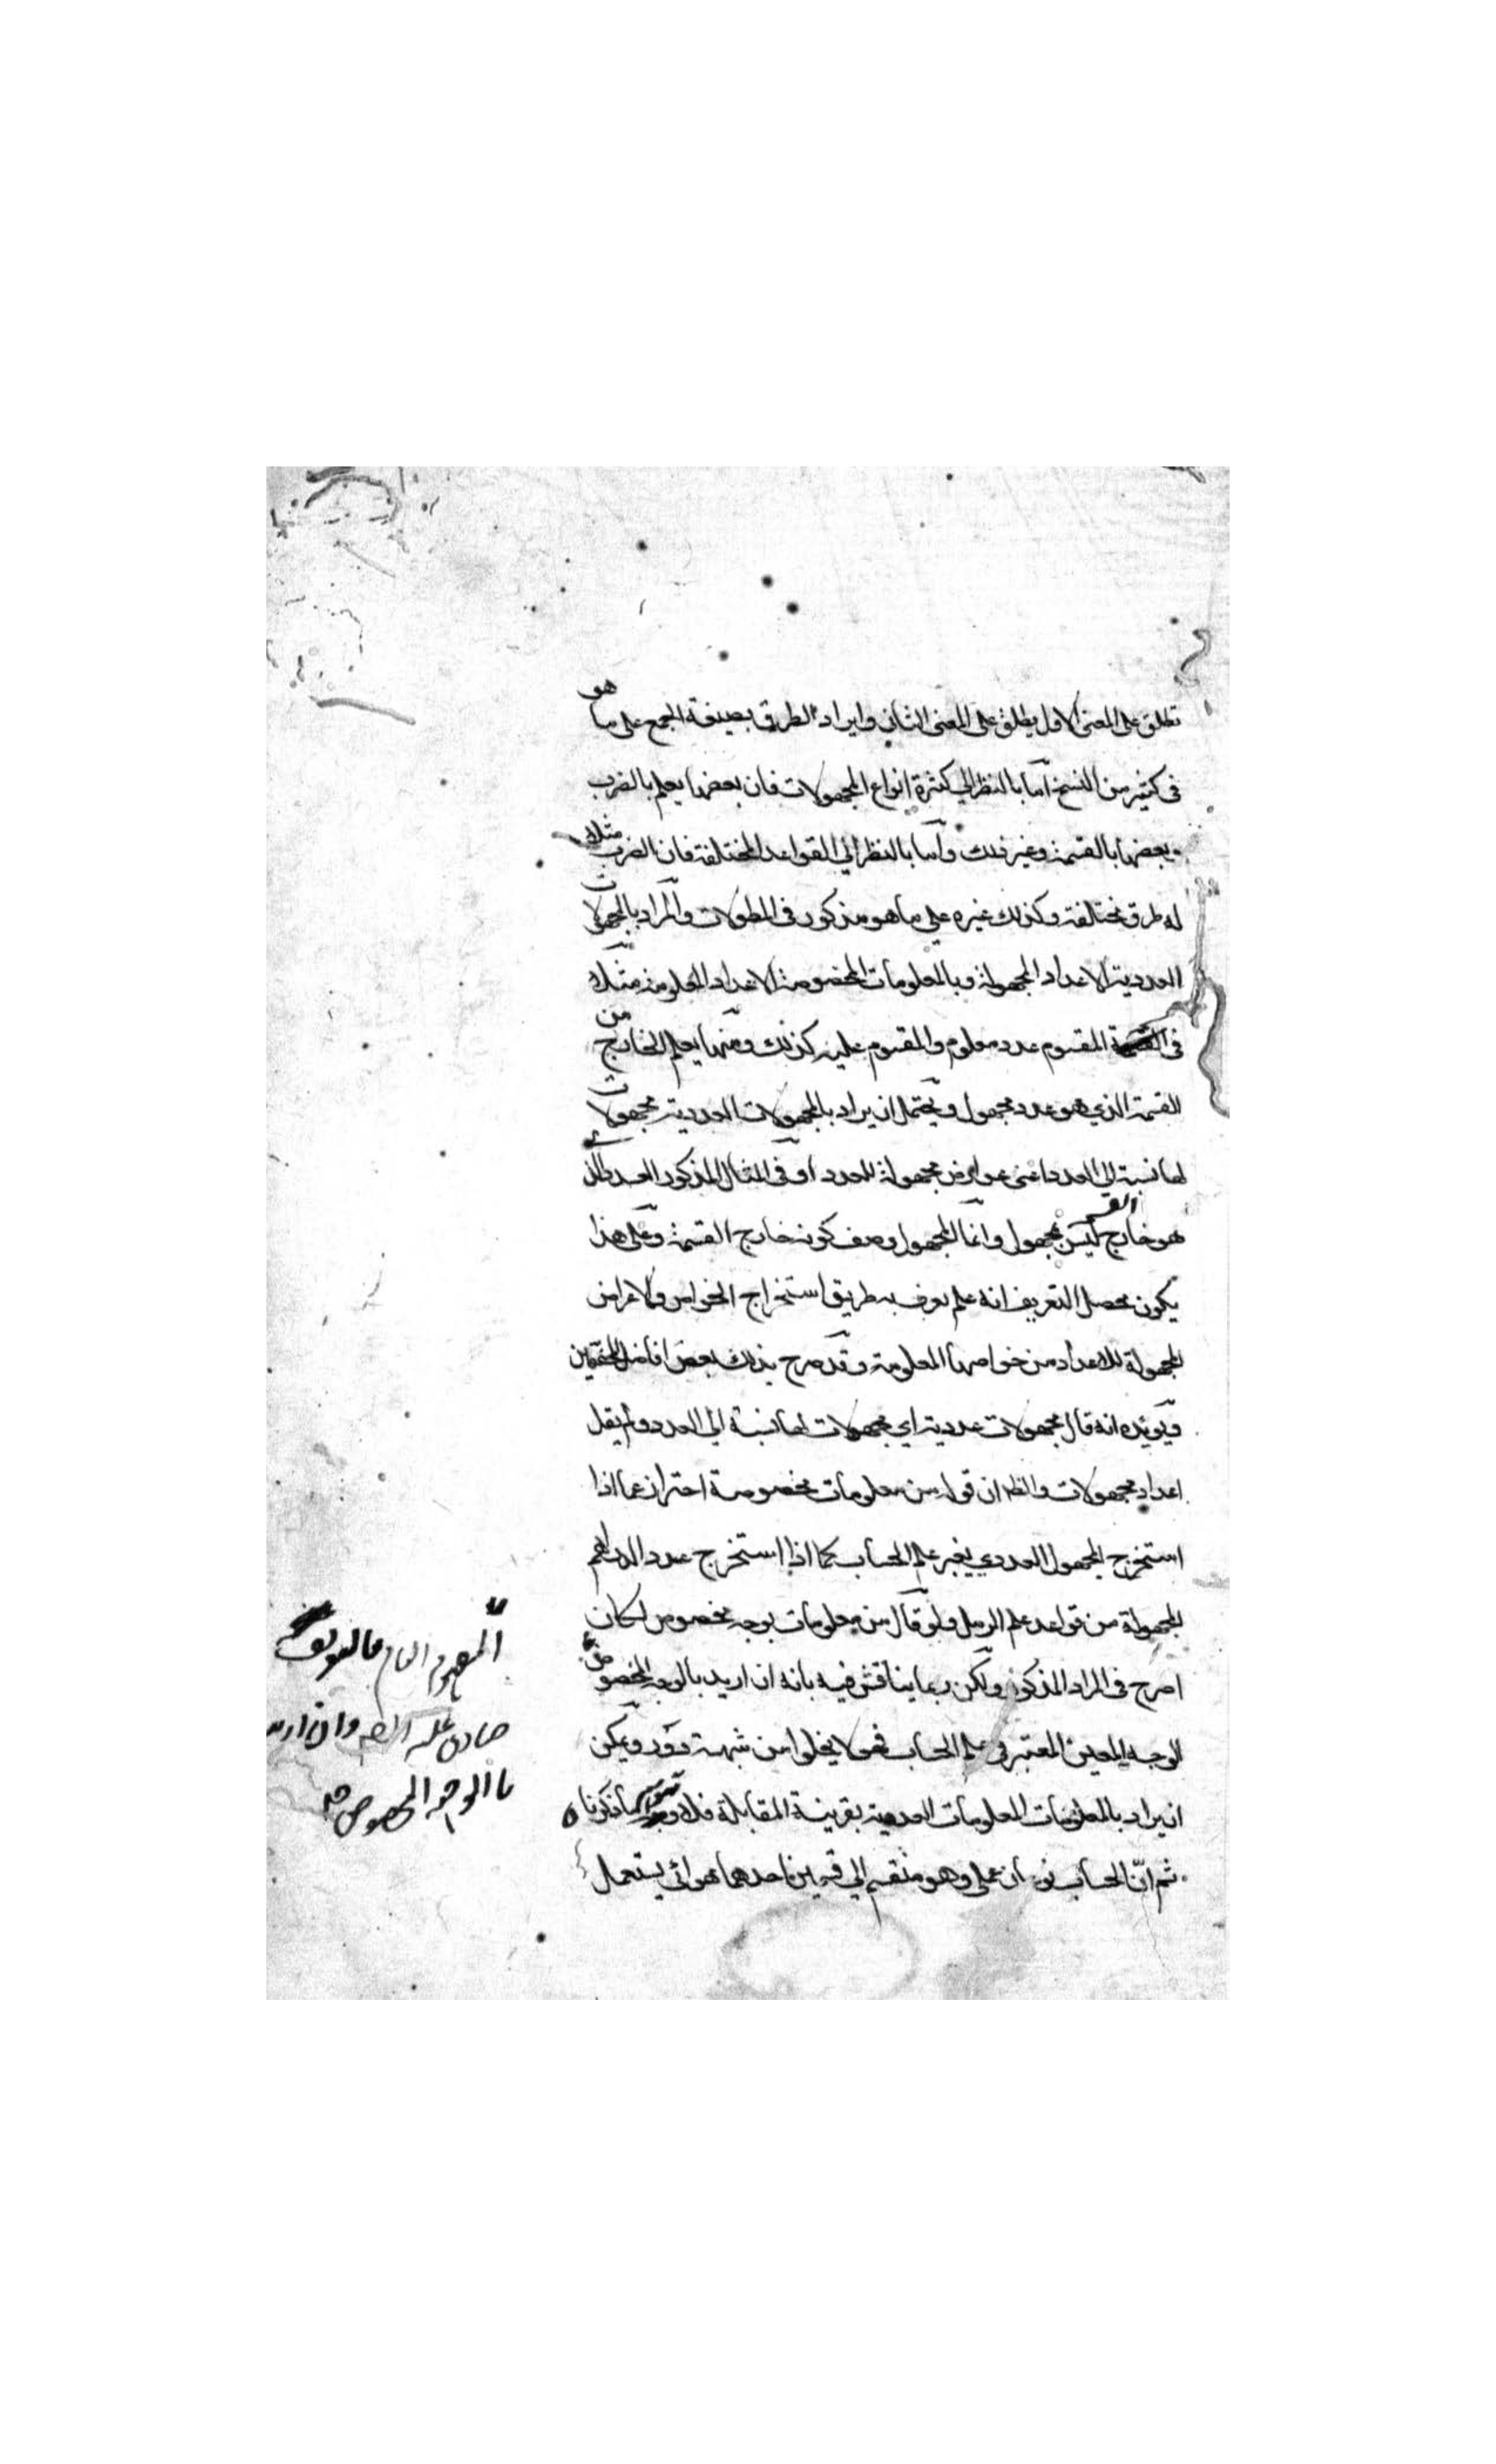 تطلق على المعنى الاول يطلق على المعنى الثاني وايراد الطرق بصيغة الجمع على ما هو
في كثير من النسخ اما بالنظر الي كثرة انواع المجهولات فان بعضها يعلم بالضرب
وبعضها بالقسمة وغير ذلك واما بالنظر الي القواعد المختلفة فان الضرب مثلا
له طرق مختلفة وكذلك غيره علي ما هو مذكور في المطولات والمراد بالمجهولات
العددية الاعداد المجهولة وبالمعلومات المخصوصة الاعداد المعلومة مثلا
في القسمة المقسوم عدد معلوم والمقسوم عليه كذلك ومنهما يعلم الخارج من
القسمة الذي هو عدد مجهول ويحتمل ان يراد بالمجهولات العددية مجهولات
لها نسبة الي العدد اعني عوارض مجهولة للعدد اذ في المثال المذكور العدد الذي
هو خارج القسمة ليس بمجهول وانما المجهول وصف كونه خارج القسمة وعلى هذا
يكون محصل التعريف انه علم يعرف به طريق استخراج الخواص والاعراض
المجهولة للاعداد من خواصها المعلومة وقد صرح بذلك بعض افاضل المحققين
ويؤيده انه قال مجهولات عددية اي مجهولات لها نسبة الي العدد ولم يقل
اعداد مجهولات والظ ان قوله من معلومات مخصوصة احتراز عما اذا
استخرج المجهول العددي بغير علم الحساب كما اذا استخرج عدد الدراهم
المجهولة من قواعد علم الرمل ولو قال من معلومات بوجه مخصوص لكان
اصرح في المراد المذكور ولكن ربما يناقش فيه بانه ان اريد بالوجه المخصوص
الوجه المعين المعتبر في علم الحساب فهو لا يخلوا من شبهة دور ويمكن
ان يراد بالمعلومات المعلومات العددية بقرينة المقابلة فلا ما ذكرنا
ثم ان الحساب نوعان عملي وهو منقسم الي قسمين احدهما هوائي يستعمل
المفهوم العام فالتعريف
صادق عليه وان اريد
بالوجه المخصوص